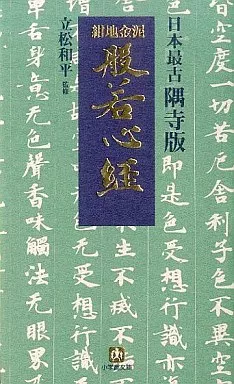 日本最古 隅寺版
紺地金泥
般若心経
立松和平 監修
空度一切苦厄舍利子色不異空
即是色受想行識
无受想行識
舌身意无色聲香味觸法无眼界
小学館文庫